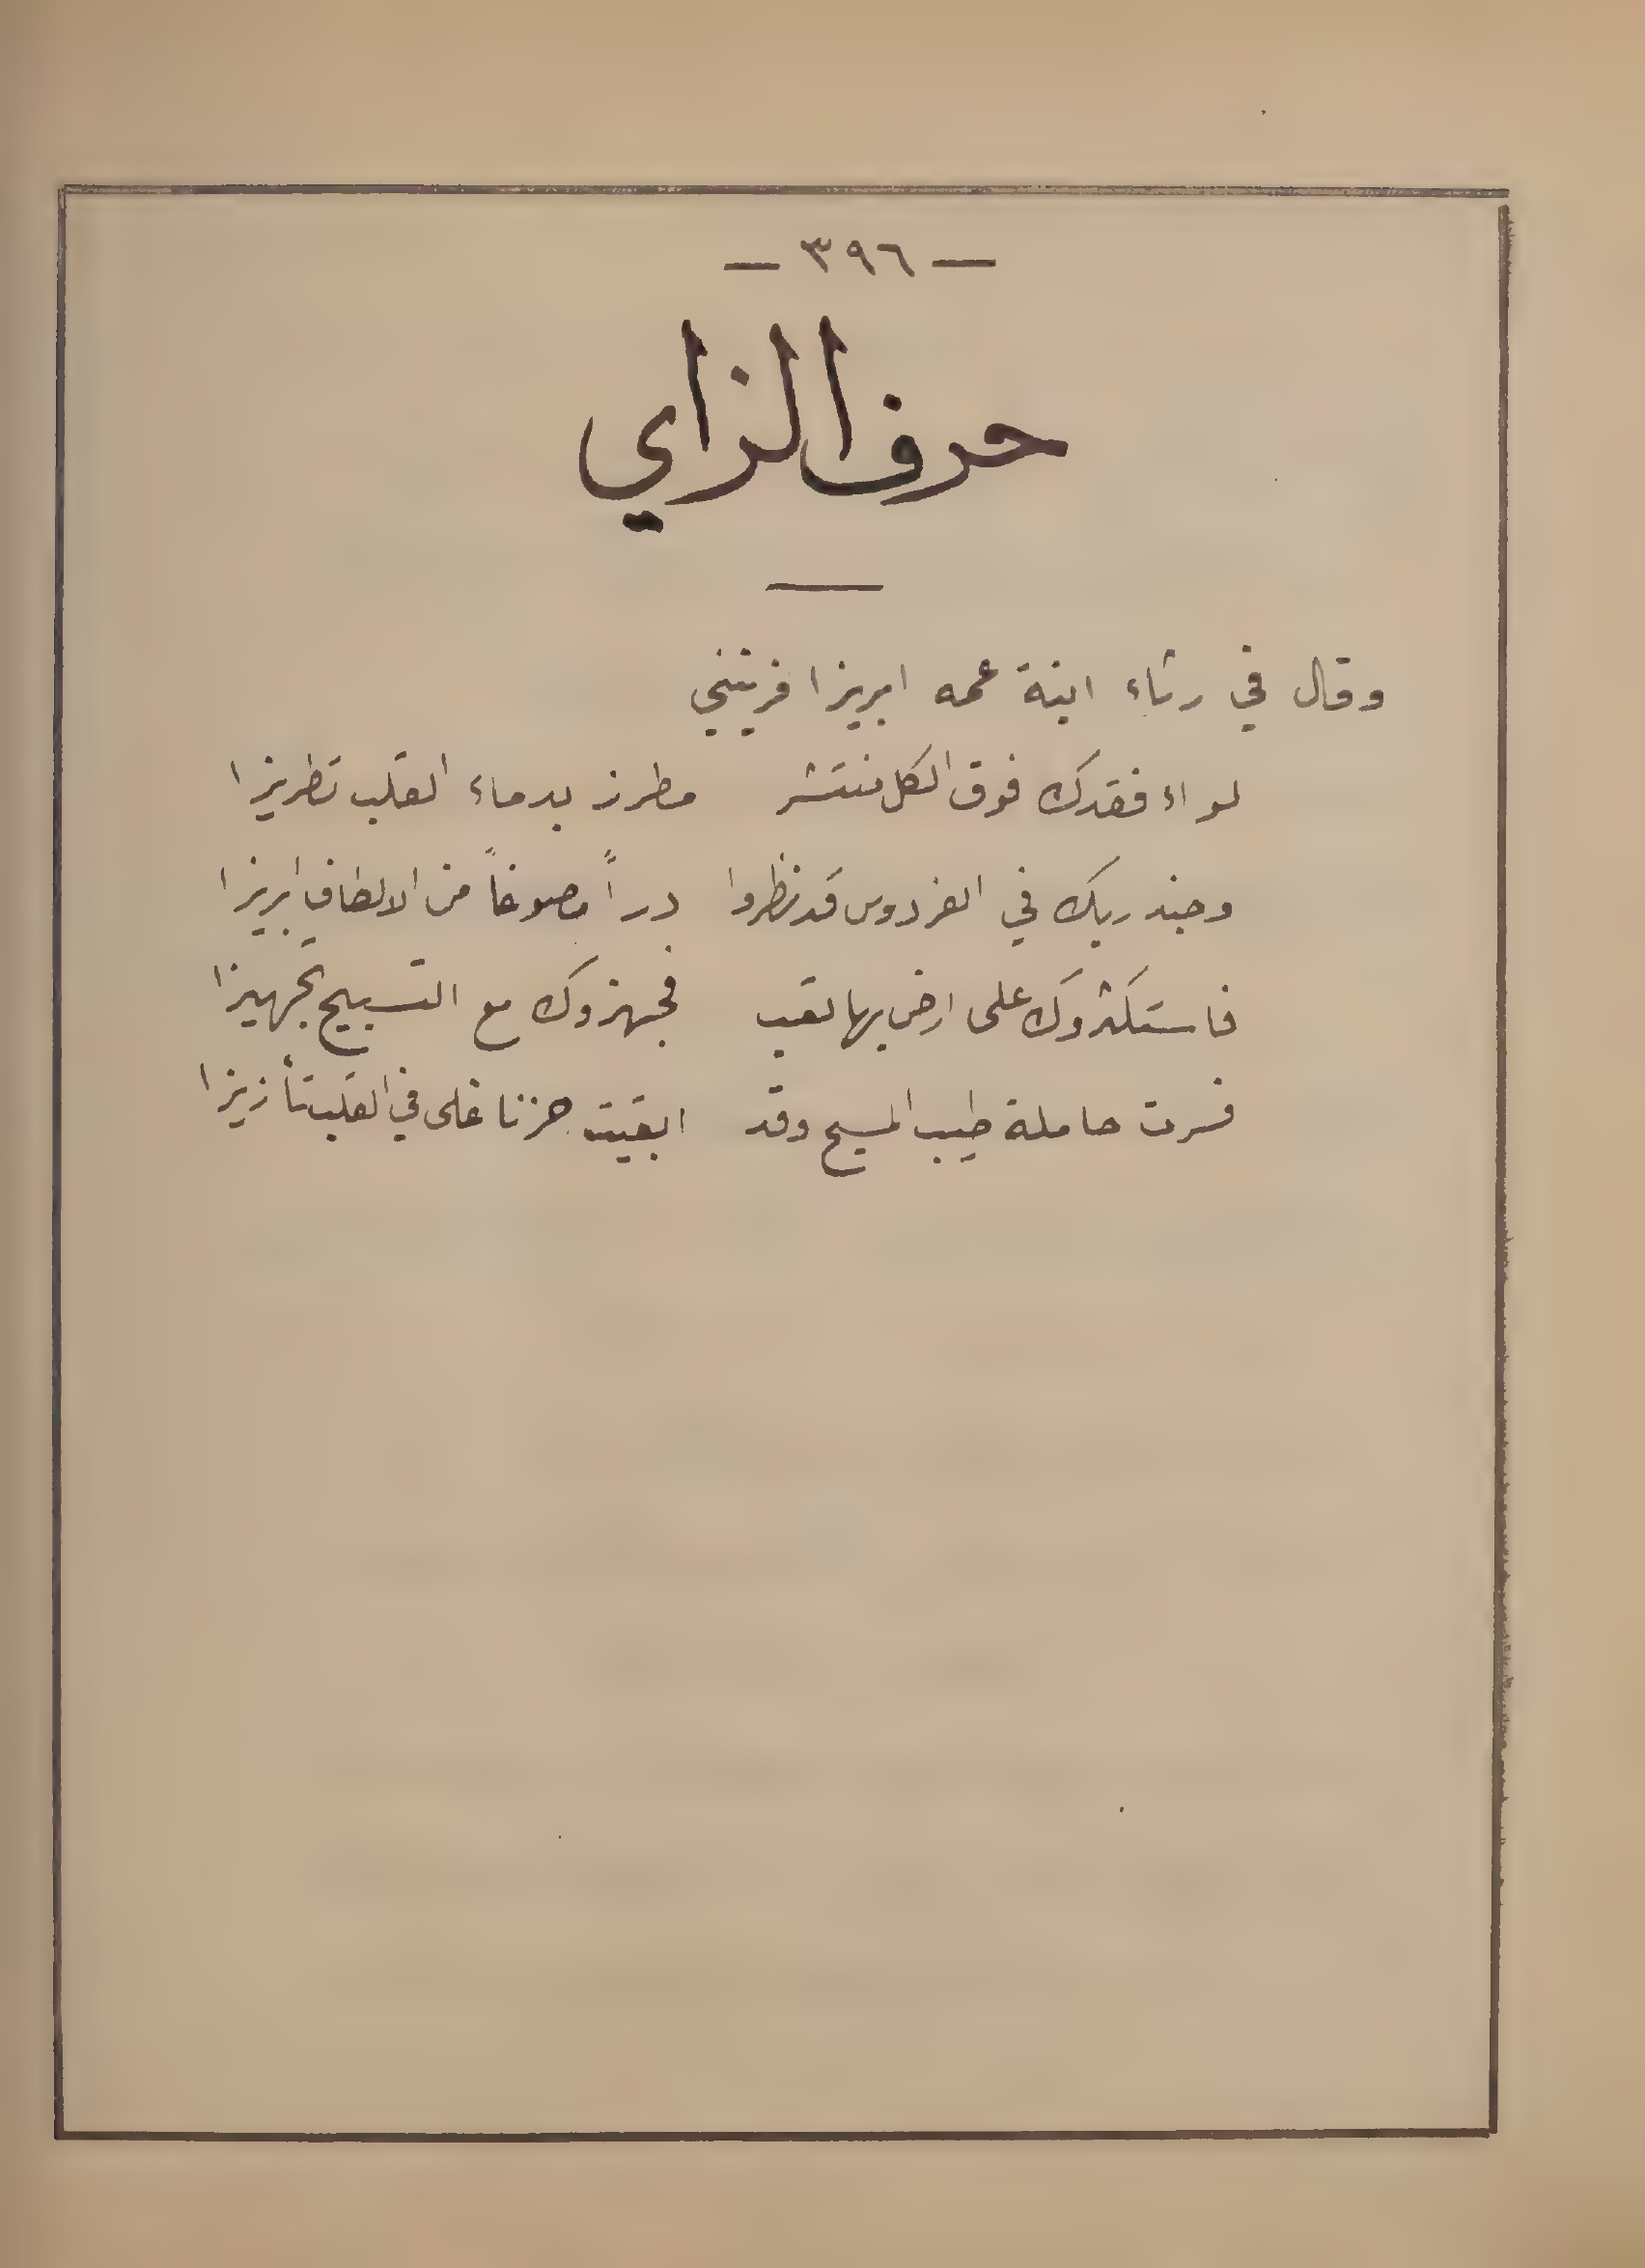 — ٣٩٦ —
حرف الزاي
وقال في رثاء ابنة عمه ابريزا فرينيني
لواء فقدك فوق الكل منتشر مطرز بدماء القلب تطريزا
وجند ربك في الفردوس قد نظروا دراً مصوغاً من الالطاف ابريزا
فاستكثروك على ارض بها تعب فجهزوك مع التسبيح تجهيزا
فسرت حاملة طيب المسيح وقد ابقيت حزنا غلى في القلب تأزيزا